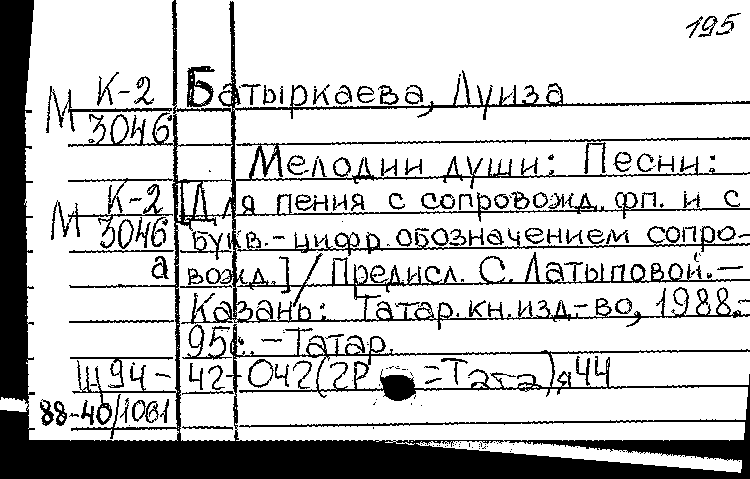 195
М К-2 Батыркаева, Луиза
3046
Мелодии души: Песни:
М К-2 [Для пения с сопровожд. фп. и с
3046 букв.-цифр. обозначением сопро-
а вожд.] / Предисл. С. Латыповой.—
Казань: Татар. кн. изд-во, 1988.-
95с.-Татар.
Щ94-42-042(2Р =Тата)я44
88-40/1061